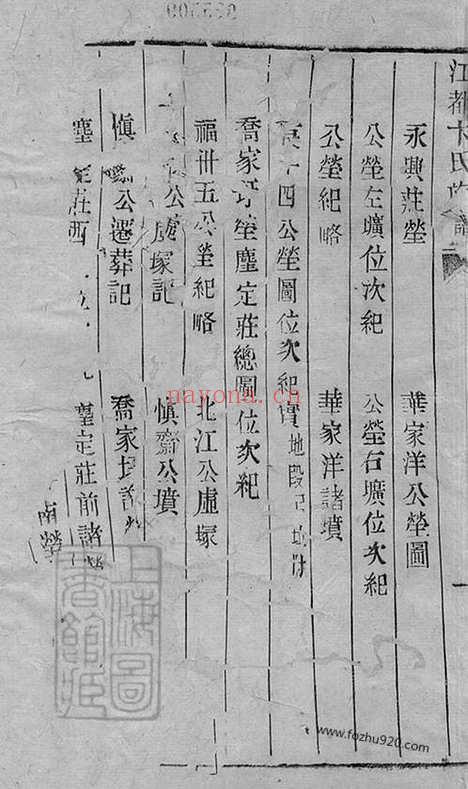 江都卞氏
永興莊塋 華家洋公塋圖
公塋左壙位次紀 公塋右壙位次紀
公塋紀略 華家洋諸墳
十四公塋圖位次紀實 地段
喬家 塋塵定莊總圖位次紀
福卅五公塋紀略 北江公虛塚
公虛塚記 慎齋公墳
慎 公遷葬記 喬家
定莊西 定莊前諸
南塋
上海圖書館藏
nayona.cn
www.fozhu920.com